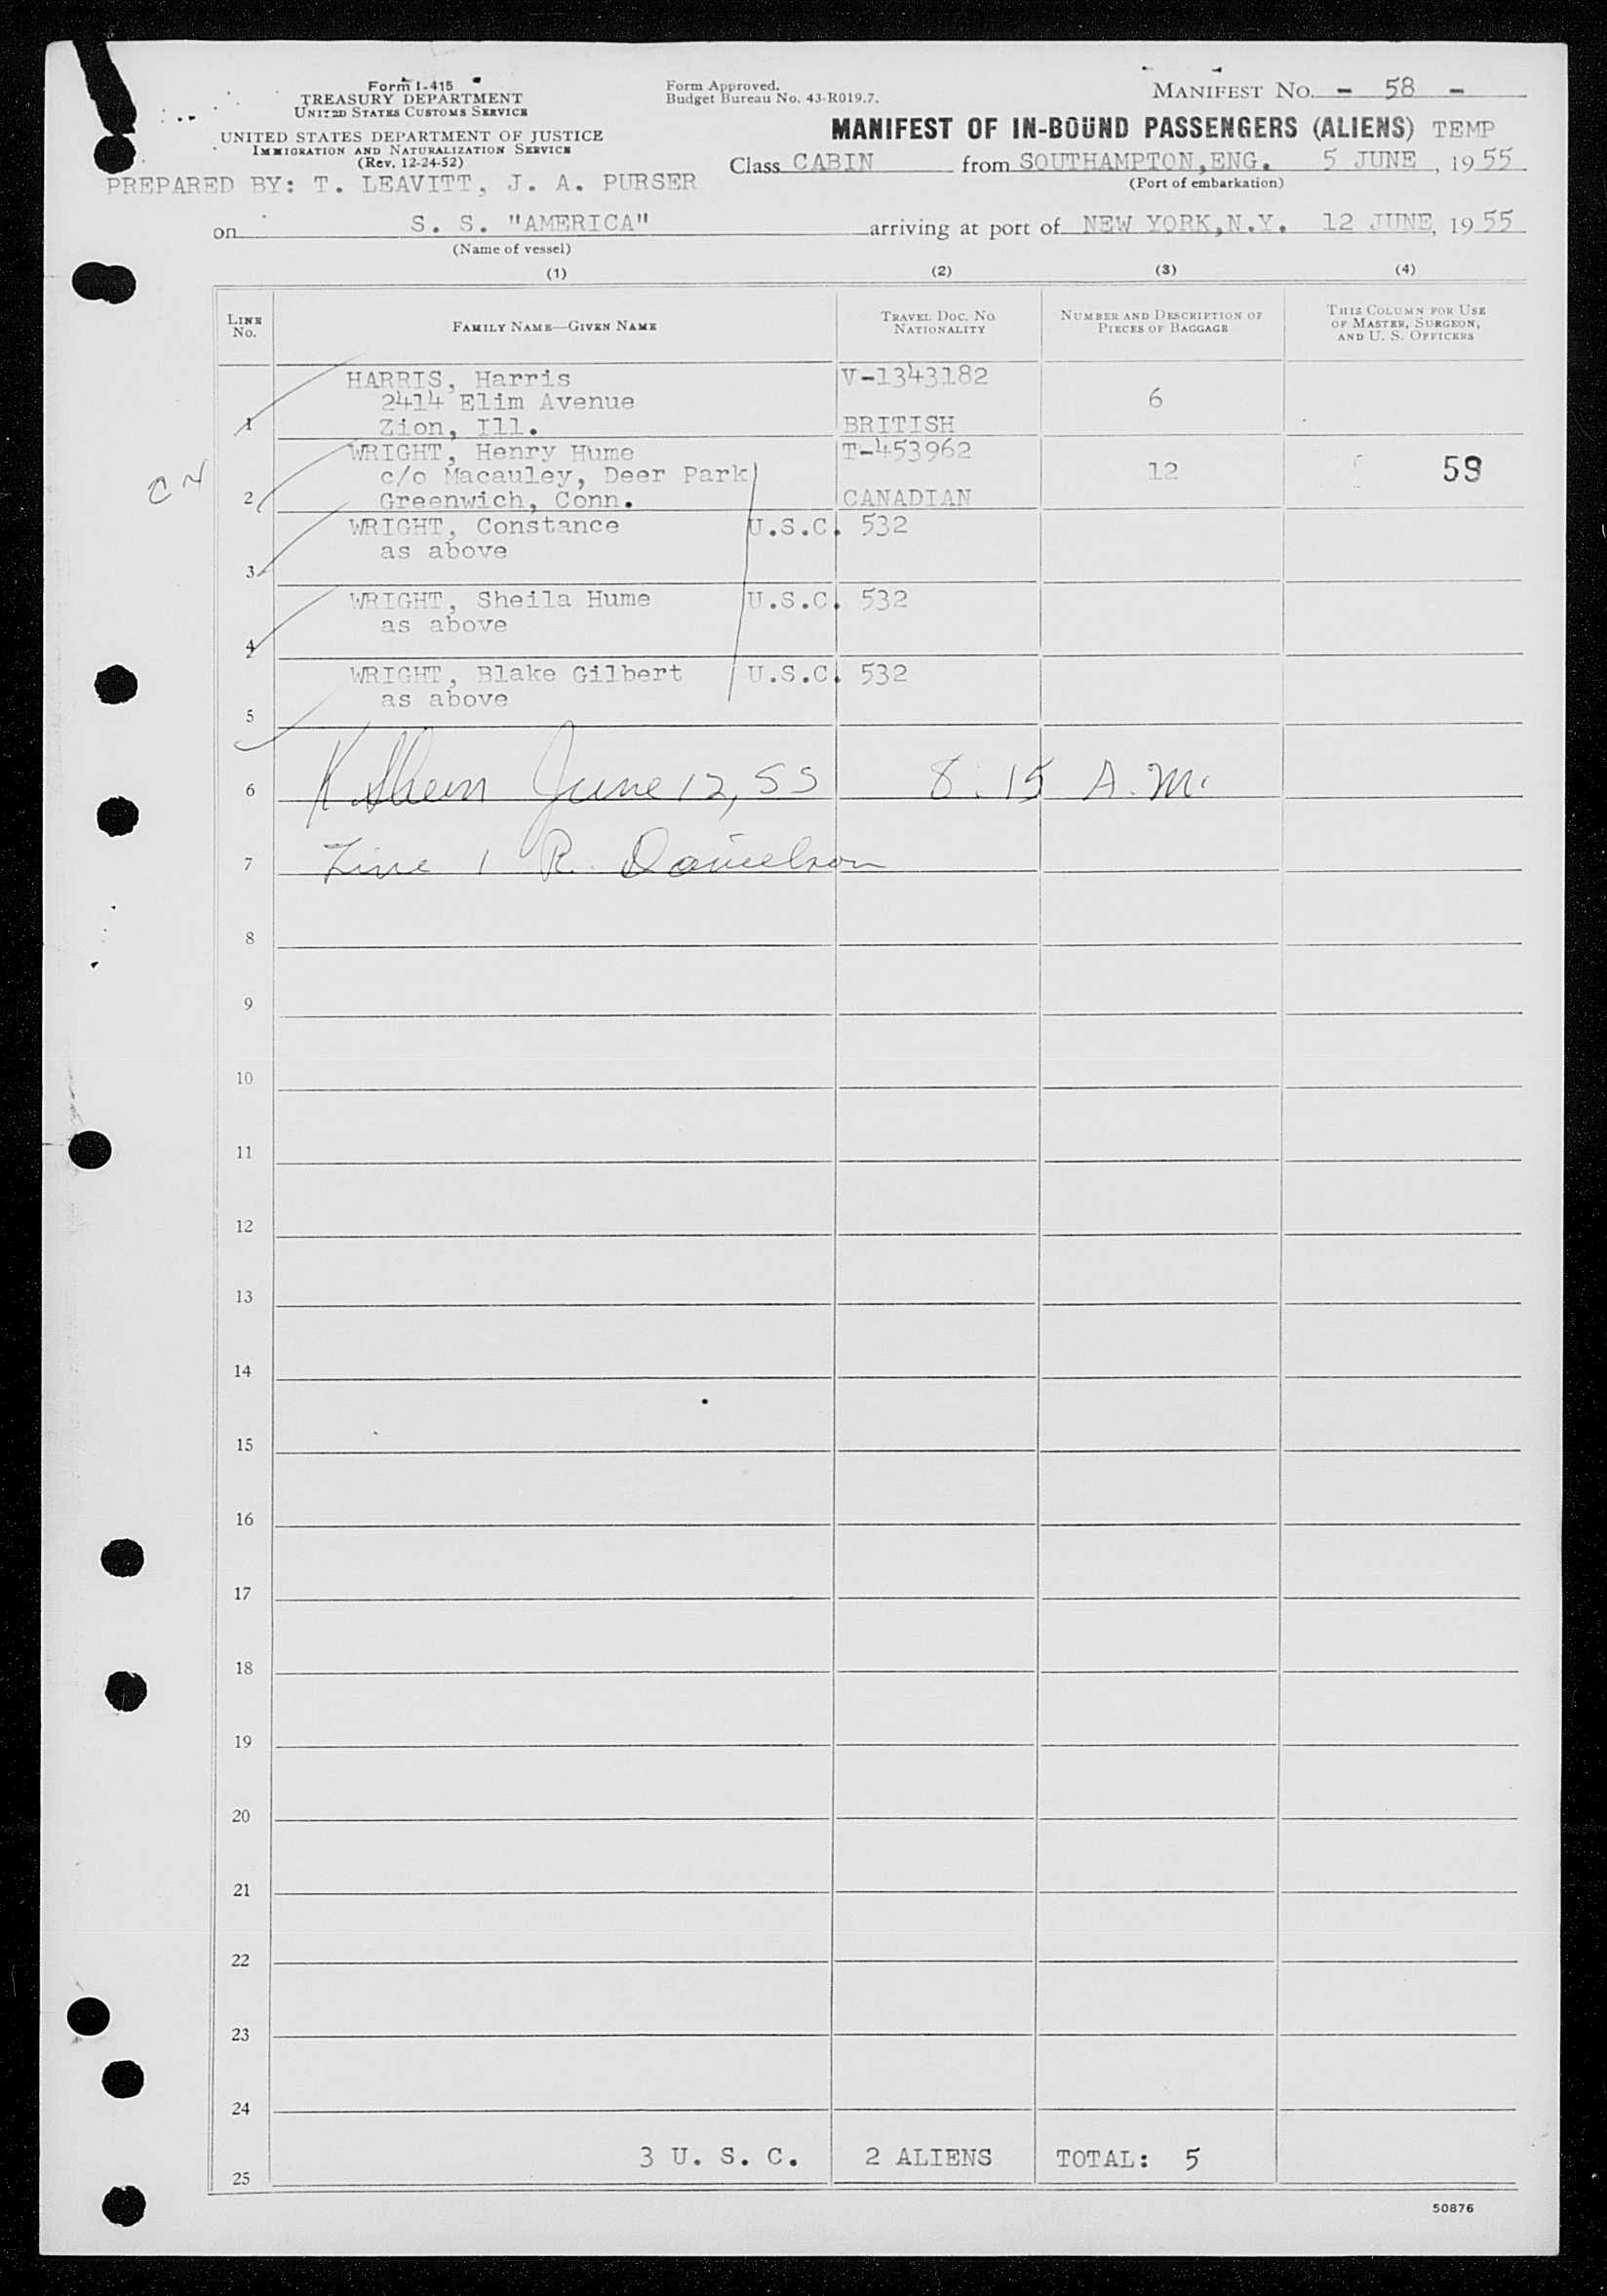 Form I-415
TREASURY DEPARTMENT
UNITED STATES CUSTOMS SERVICE
UNITED STATES DEPARTMENT OF JUSTICE
IMMIGRATION AND NATURALIZATION SERVICE
(Rev. 12-24-52)
PREPARED BY: T. LEAVITT, J. A. PURSER
Form Approved.
Budget Bureau No. 43-R019.7.
MANIFEST NO. - 58 -
MANIFEST OF IN-BOUND PASSENGERS (ALIENS) TEMP
Class CABIN from SOUTHAMPTON,ENG. 5 JUNE, 1955
(Port of embarkation)
on S. S. "AMERICA" arriving at port of NEW YORK,N.Y. 12 JUNE, 1955
(Name of vessel)
(1) (2) (3) (4)
LINE No.
FAMILY NAME—GIVEN NAME
TRAVEL DOC. NO. NATIONALITY
NUMBER AND DESCRIPTION OF PIECES OF BAGGAGE
THIS COLUMN FOR USE OF MASTER, SURGEON, AND U. S. OFFICERS
HARRIS, Harris V-1343182
2414 Elim Avenue 6
1 Zion, Ill. BRITISH
WRIGHT, Henry Hume T-453962
c/o Macauley, Deer Park 12 58
2 Greenwich, Conn. CANADIAN
WRIGHT, Constance U.S.C. 532
as above
3
WRIGHT, Sheila Hume U.S.C. 532
as above
4
WRIGHT, Blake Gilbert U.S.C. 532
as above
5
6 June 12, 55 8:15 A.M.
7 Line 1 R. Danielson
8
9
10
11
12
13
14
15
16
17
18
19
20
21
22
23
24
25 3 U. S. C. 2 ALIENS TOTAL: 5
50876